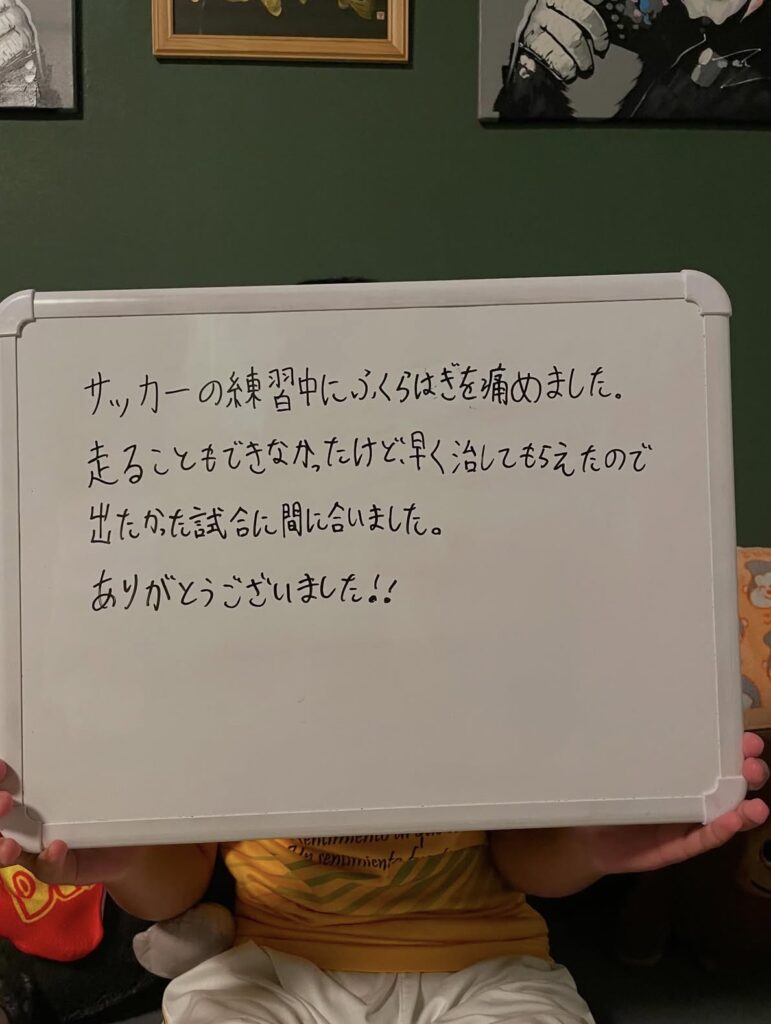 サッカーの練習中にふくらはぎを痛めました。
走ることもできなかったけど、早く治してもらえたので
出たかった試合に間に合いました。
ありがとうございました!!